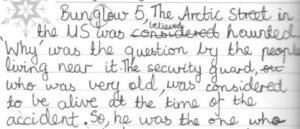 Bunglow 5, The Arctic Street in
believed
the US was considered haunted
Why was the question by the people
living near it. The security guard, ou
who was very old, was considered
to be alive at the time of the
accident. So, he was the one who